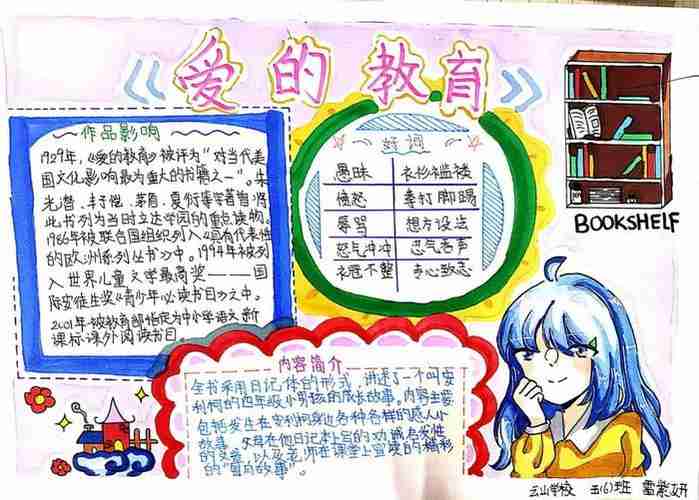 《爱的教育》
作品影响
1929年,《爱的教育》被评为“对当代美
国文化影响最为重大的书籍之一”。朱
光潜、丰子恺、茅盾、夏衍等学者曾将
此书列为当时立达学园的重点读物。
1986年被联合国组织列入《具有代表性
的欧洲系列丛书》中。1994年被列
入世界儿童文学最高奖———国
际安徒生奖《青少年必读书目》之中。
2001年被教育部指定为中小学语文新
课标课外阅读书目。
好词
愚昧 衣衫褴褛
愤怒 拳打脚踢
辱骂 想方设法
怒气冲冲 忍气吞声
衣冠不整 专心致志
BOOKSHELF
内容简介
全书采用日记体的形式,讲述了一个叫安
利柯的四年级小男孩的成长故事。内容主要
包括发生在安利柯身边各种各样的感人小
故事、父母在他日记本上写的劝诫启发性
的文章,以及老师在课堂上宣读的精彩
的“每月故事”。
玉山学校 五(6)班